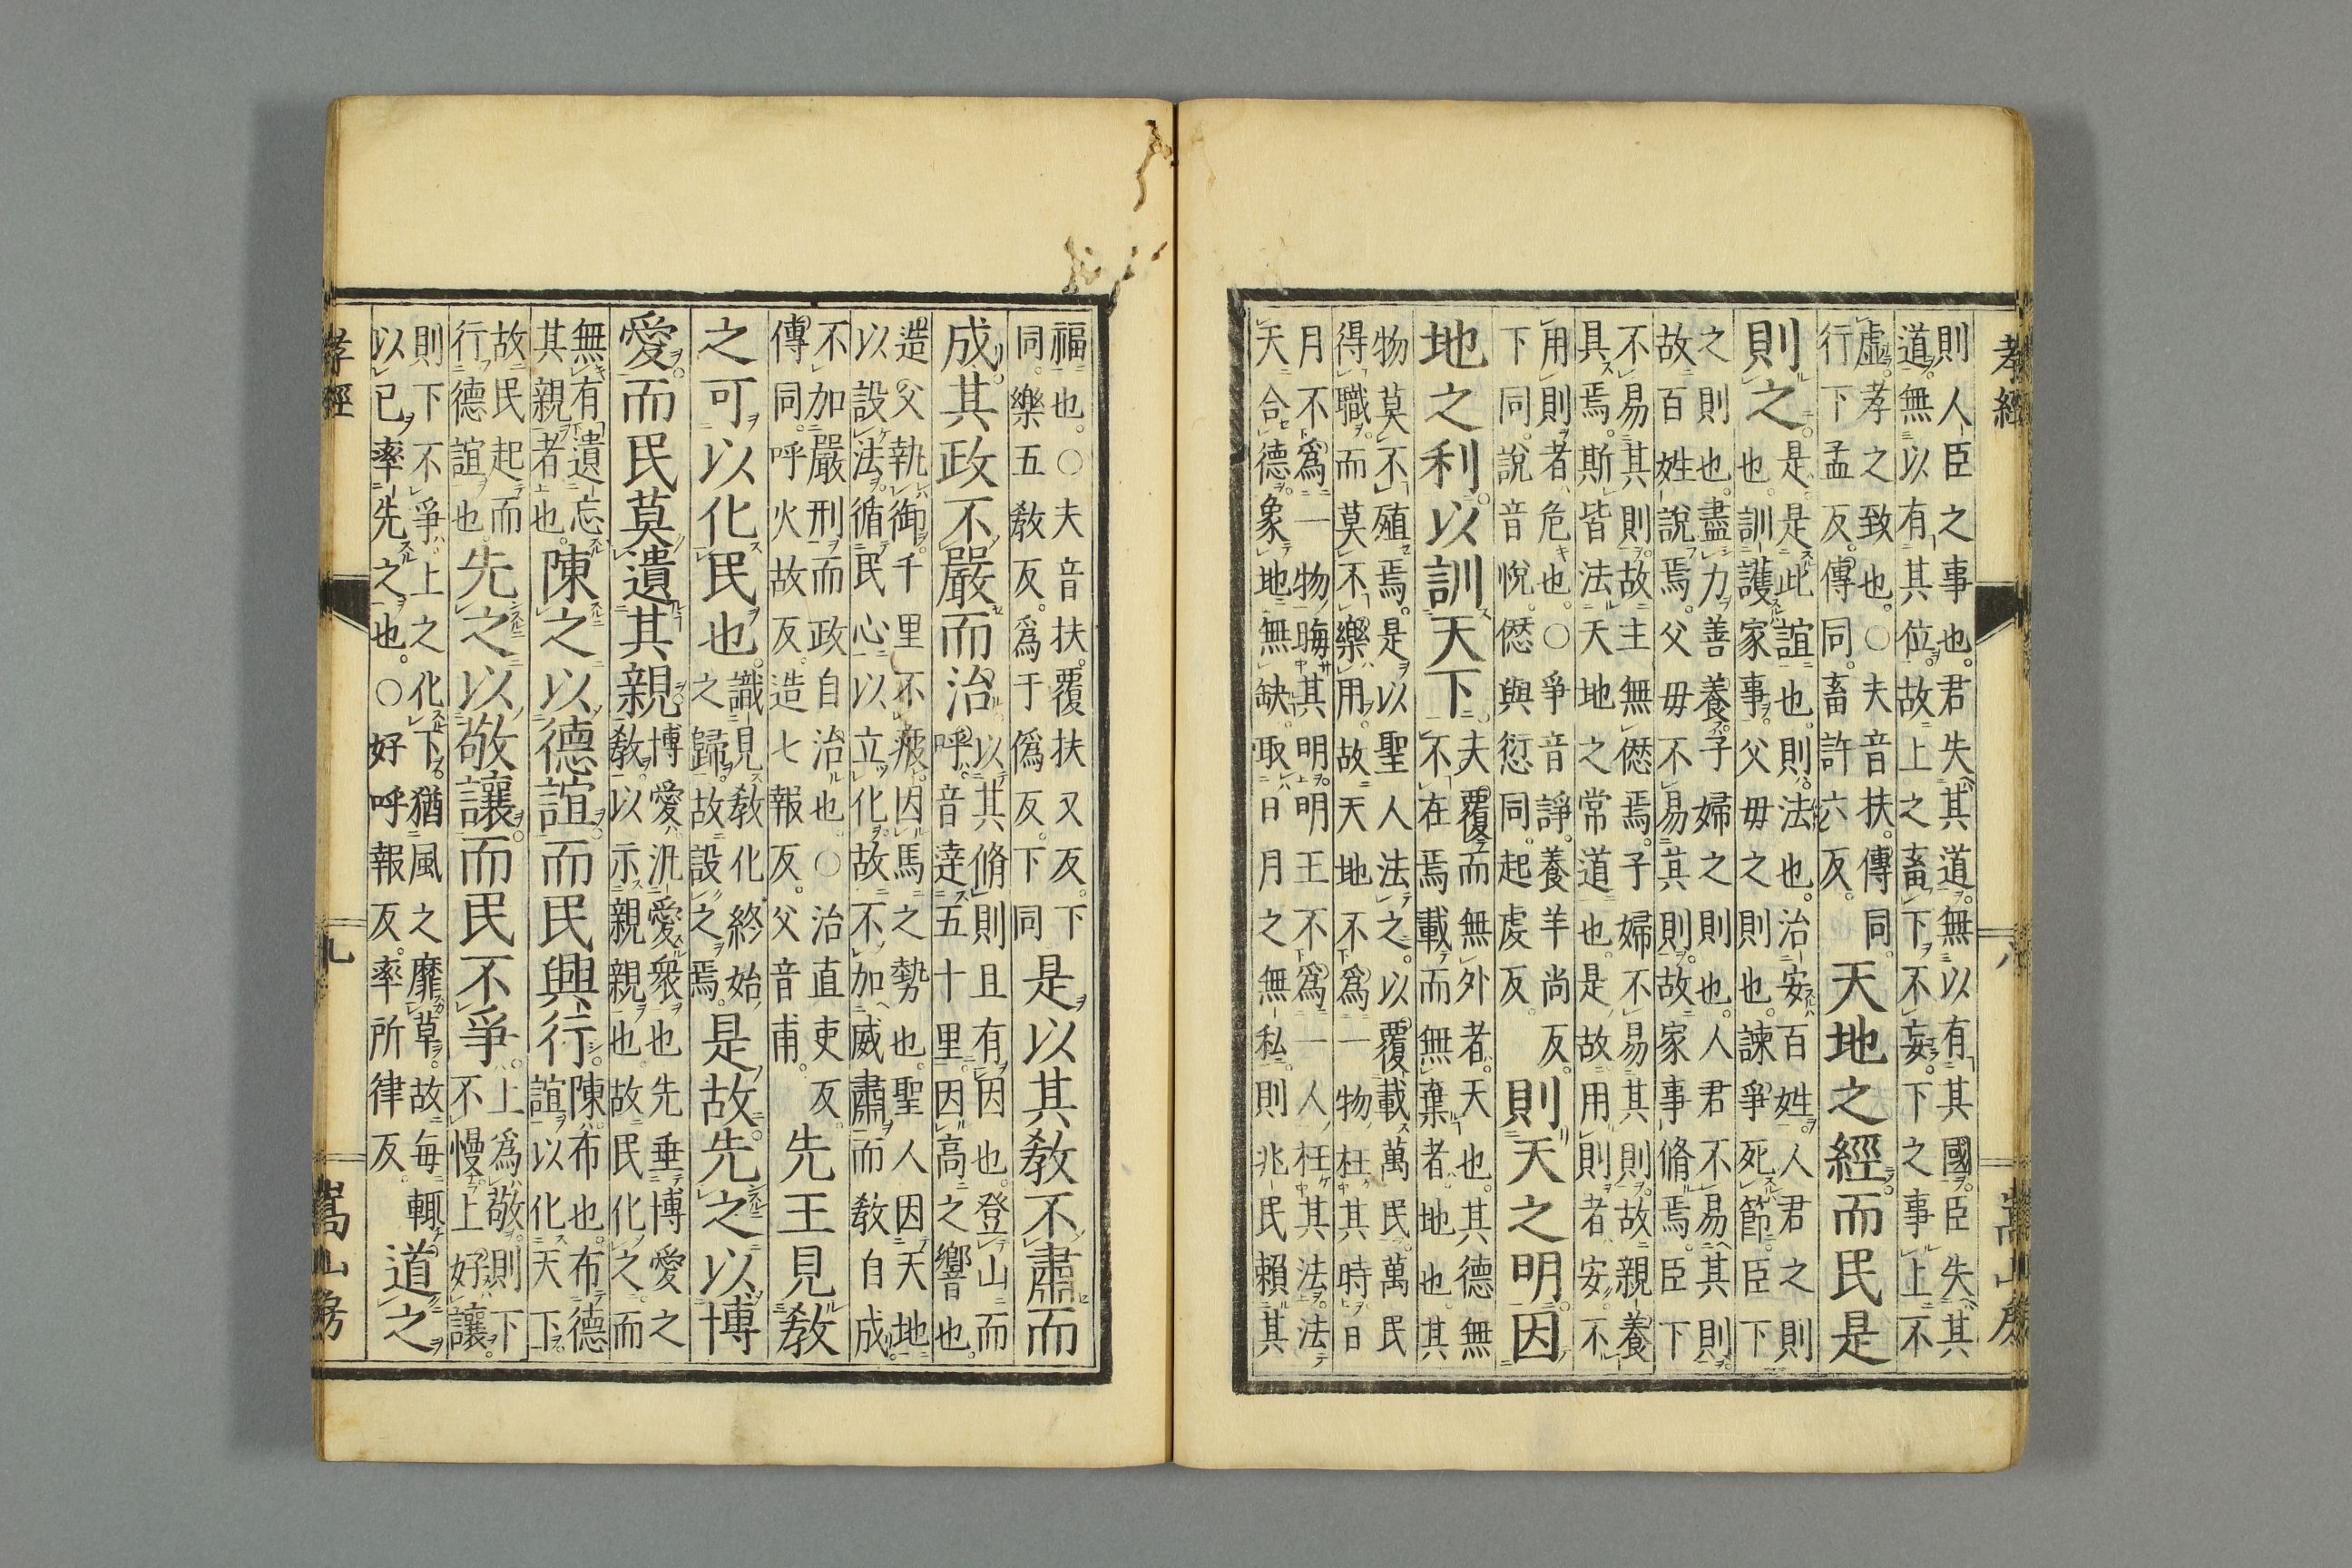 孝經
則人臣之事也。君失其道。無以有其國。臣失其
道。無以有其位。故上之畜下。不妄。下之事上。不
虛。孝之致也。○夫音扶。傳同。
行下孟反。傳同。畜許六反。
天地之經。而民是
則之。
是。是此誼也。則。法也。治安百姓。人君之則
也。訓護家事。父毋之則也。諫爭死節。臣下
之則也。盡力善養。子婦之則也。人君不易其則。
故百姓說焉。父毋不易其則。故家事脩焉。臣下
不易其則。故主無僁焉。子婦不易其則。故親養
具焉。斯皆法天地之常道也。是故用則者安。不
用則者危也。○爭音諍。養羊尚反。
下同。說音悅。僁與愆同。起虔反。
則天之明。因
地之利。以訓天下。
夫覆而無外者。天也。其德無
不在焉。載而無棄者。地也。其
物莫不殖焉。是以聖人法之。以覆載萬民。萬民
得職。而莫不樂用。故天地不爲一物枉其時。日
月不爲一物晦其明。明王不爲一人枉其法。法
天合德。象地無缺。取日月之無私。則兆民賴其
八
嵩山房
福也。○夫音扶。覆扶又反。下
同。樂五敎反。爲于僞反。下同
是以其敎不肅而
成。其政不嚴而治。
以其脩則且有因也。登山而
呼。音達五十里。因高之響也。
造父執御。千里不疲。因馬之勢也。聖人因天地
以設法。循民心以立化。故不加威肅而敎自成。
不加嚴刑而政自治也○治直吏反。
傳同。呼火故反。造七報反。父音甫。
先王見敎
之可以化民也。
識見敎化終始
之歸。故設之焉。
是故先之以博
愛。而民莫遺其親。
博愛。汎愛衆也。先垂博愛之
敎。以示親親也。故民化之。而
無有遺忘
其親者也。
陳之以德誼。而民興行。
陳。布也。布德
誼以化天下。
故民起而
行德誼也。
先之以敬讓。而民不爭。
上爲敬。則下
不慢。上好讓。
則下不爭。上之化下。猶風之靡草。故每輒
以已率先之也。○好呼報反。率所律反。
道之
孝經
九
嵩山房